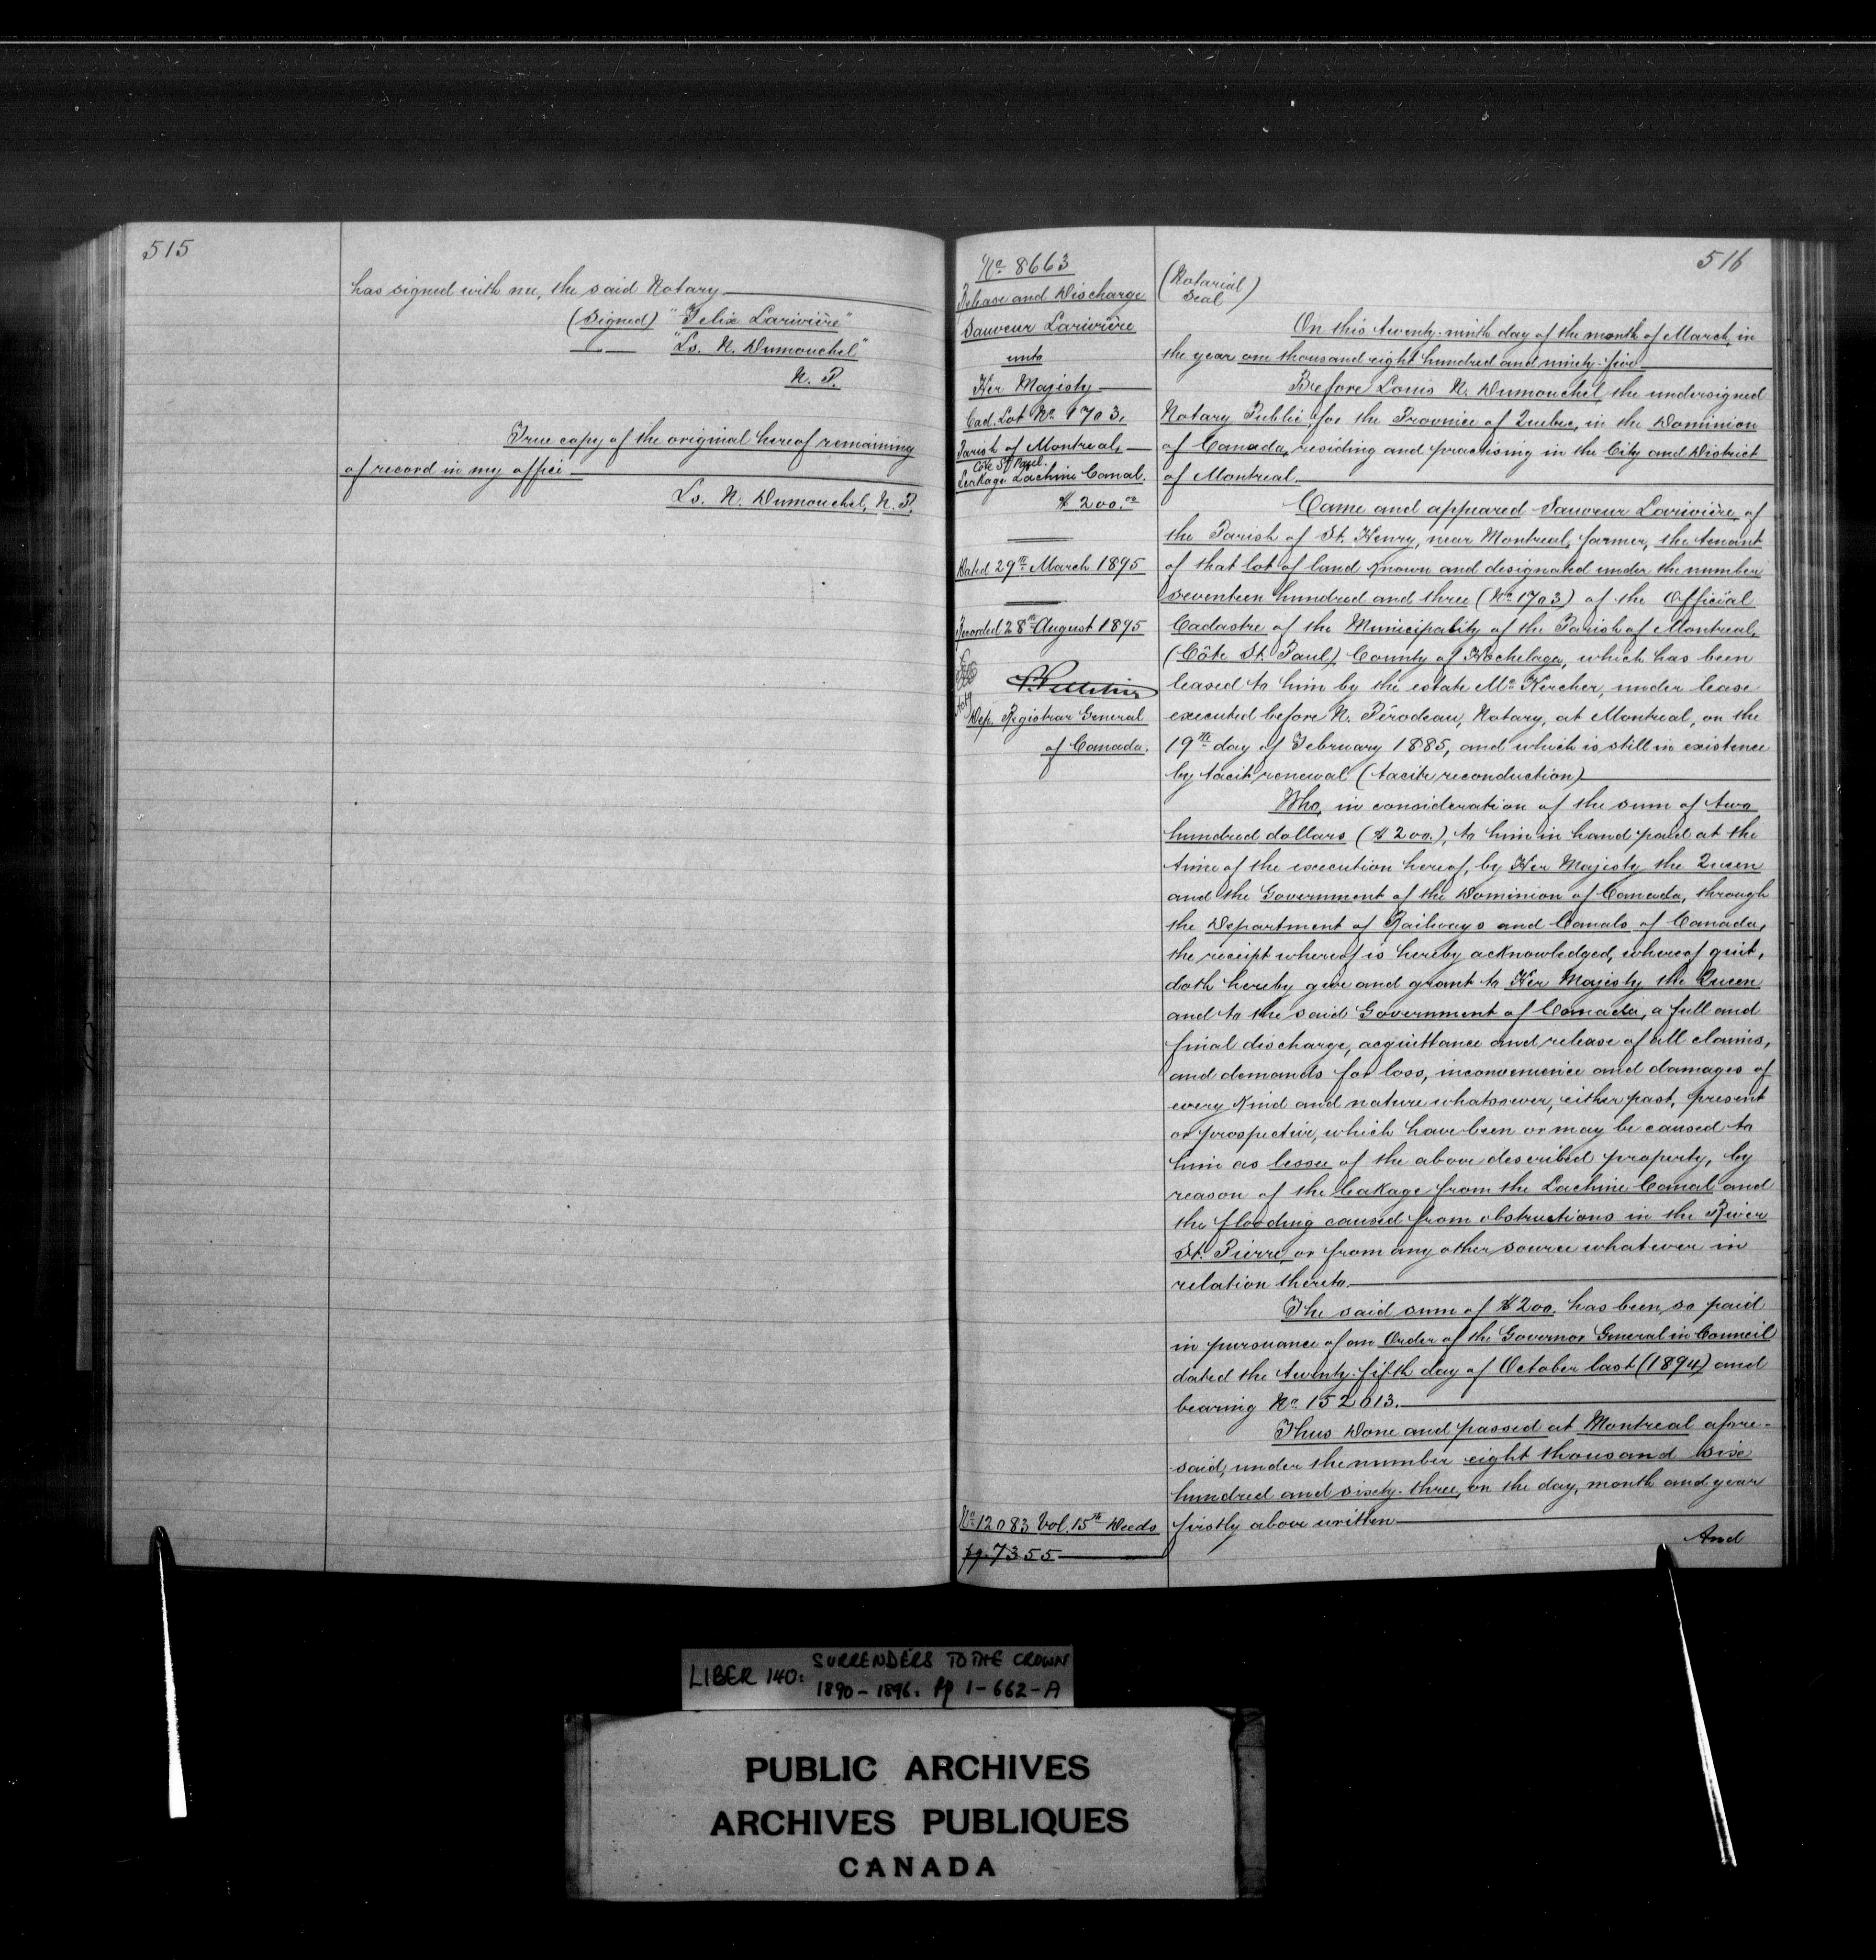 515
has signed with me, the said Notary
(Signed) "Felix Larivière"
"Ls. N. Dumouchel"
N. P.
True copy of the original hereof remaining
of record in my office
Ls. N. Dumouchel, N. P.
516
No. 8663
Release and Discharge
Sauveur Larivière
unto
Her Majesty
Cad. Lot No. 1703,
Parish of Montreal,
Côte St. Paul.
Leakage Lachine Canal.
$200.00
Dated 29th March 1895
Recorded 28th August 1895
Dep. Registrar General
of Canada.
No. 12083 Vol. 15th Deeds
pg. 7355
(Notarial
Seal)
On this twenty-ninth day of the month of March, in
the year one thousand eight hundred and ninety-five
Before Louis N. Dumouchel the undersigned
Notary Public for the Province of Quebec, in the Dominion
of Canada, residing and practising in the City and District
of Montreal.
Came and appeared Sauveur Larivière, of
the Parish of St. Henry, near Montreal, farmer, the tenant
of that lot of land known and designated under the number
seventeen hundred and three (No. 1703) of the Official
Cadastre of the Municipality of the Parish of Montreal,
(Côte St. Paul) County of Hochelaga, which has been
leased to him by the estate Mc Kercher, under lease
executed before N. Pérodeau, Notary, at Montreal, on the
19th day of February 1885, and which is still in existence
by tacit renewal (tacite reconduction)
Who, in consideration of the sum of two
hundred dollars ($200.), to him in hand paid at the
time of the execution hereof, by Her Majesty the Queen
and the Government of the Dominion of Canada, through
the Department of Railways and Canals of Canada,
the receipt whereof is hereby acknowledged, whereof quit,
doth hereby give and grant to Her Majesty the Queen
and to the said Government of Canada, a full and
final discharge, acquittance and release of all claims,
and demands for loss, inconvenience and damages of
every kind and nature whatsoever, either past, present
or prospective, which have been or may be caused to
him as lessee of the above described property, by
reason of the leakage from the Lachine Canal and
the flooding caused from obstructions in the River
St. Pierre, or from any other source whatever in
relation thereto.
The said sum of $200. has been so paid
in pursuance of an Order of the Governor General in Council
dated the twenty-fifth day of October last (1894) and
bearing No. 152013.
Thus Done and passed at Montreal afore-
said, under the number eight thousand six
hundred and sixty-three, on the day, month and year
firstly above written
And
LIBER 140: SURRENDERS TO THE CROWN
1890-1896. pp 1-662-A
PUBLIC ARCHIVES
ARCHIVES PUBLIQUES
CANADA